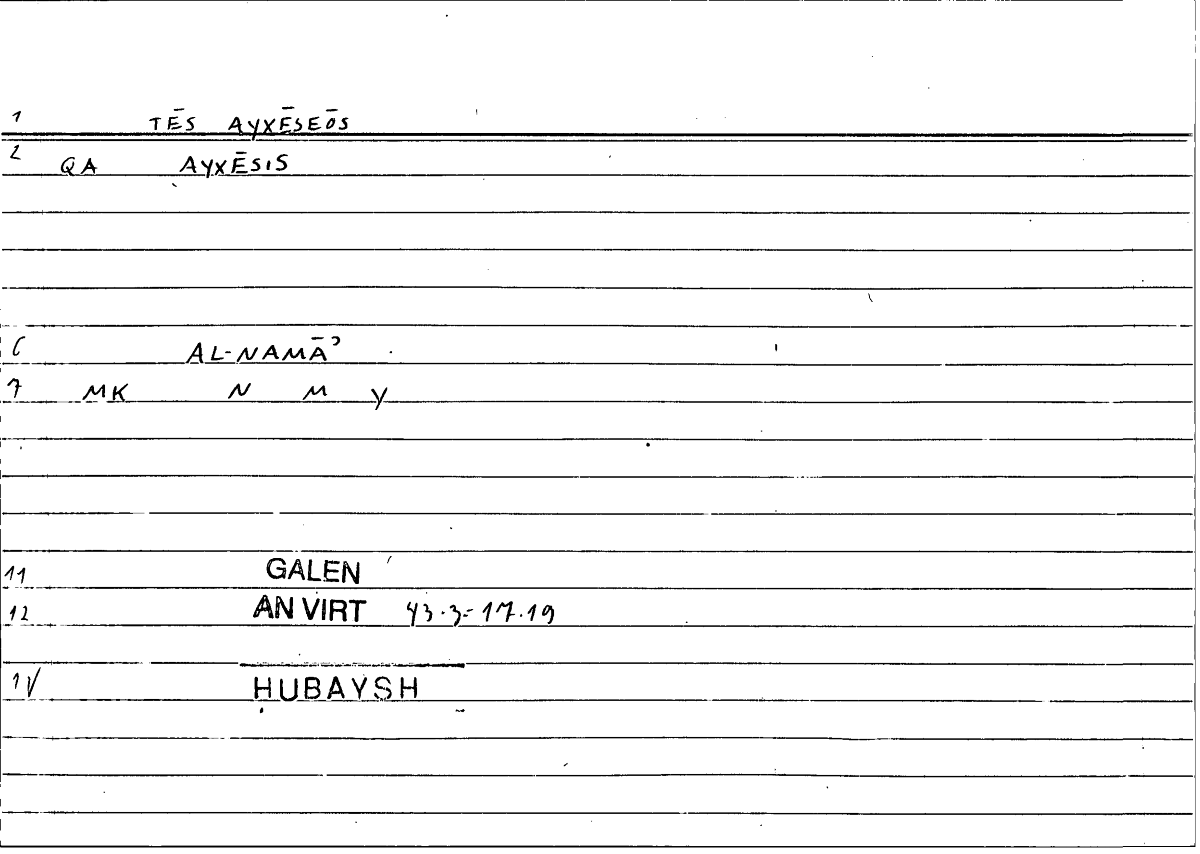 1 TĒS AYXĒSEŌS
2 QA AYXĒSIS
6 AL-NAMĀʾ
7 MK N M Y
11 GALEN
12 AN VIRT 43.3=17.19
14 ḤUBAYSH